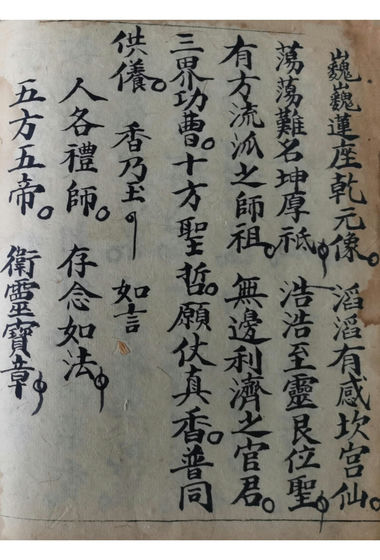 巍巍蓮座乾元像。滔滔有感坎宫仙。
蕩蕩難名坤厚祇。浩浩至靈艮位聖。
有方流派之師祖。無邊利濟之官君。
三界功曹。十方聖哲。願仗真香。普同
供儀。香乃玉 如言
人各禮師。存念如法。
五方五帝。衛靈寶章。